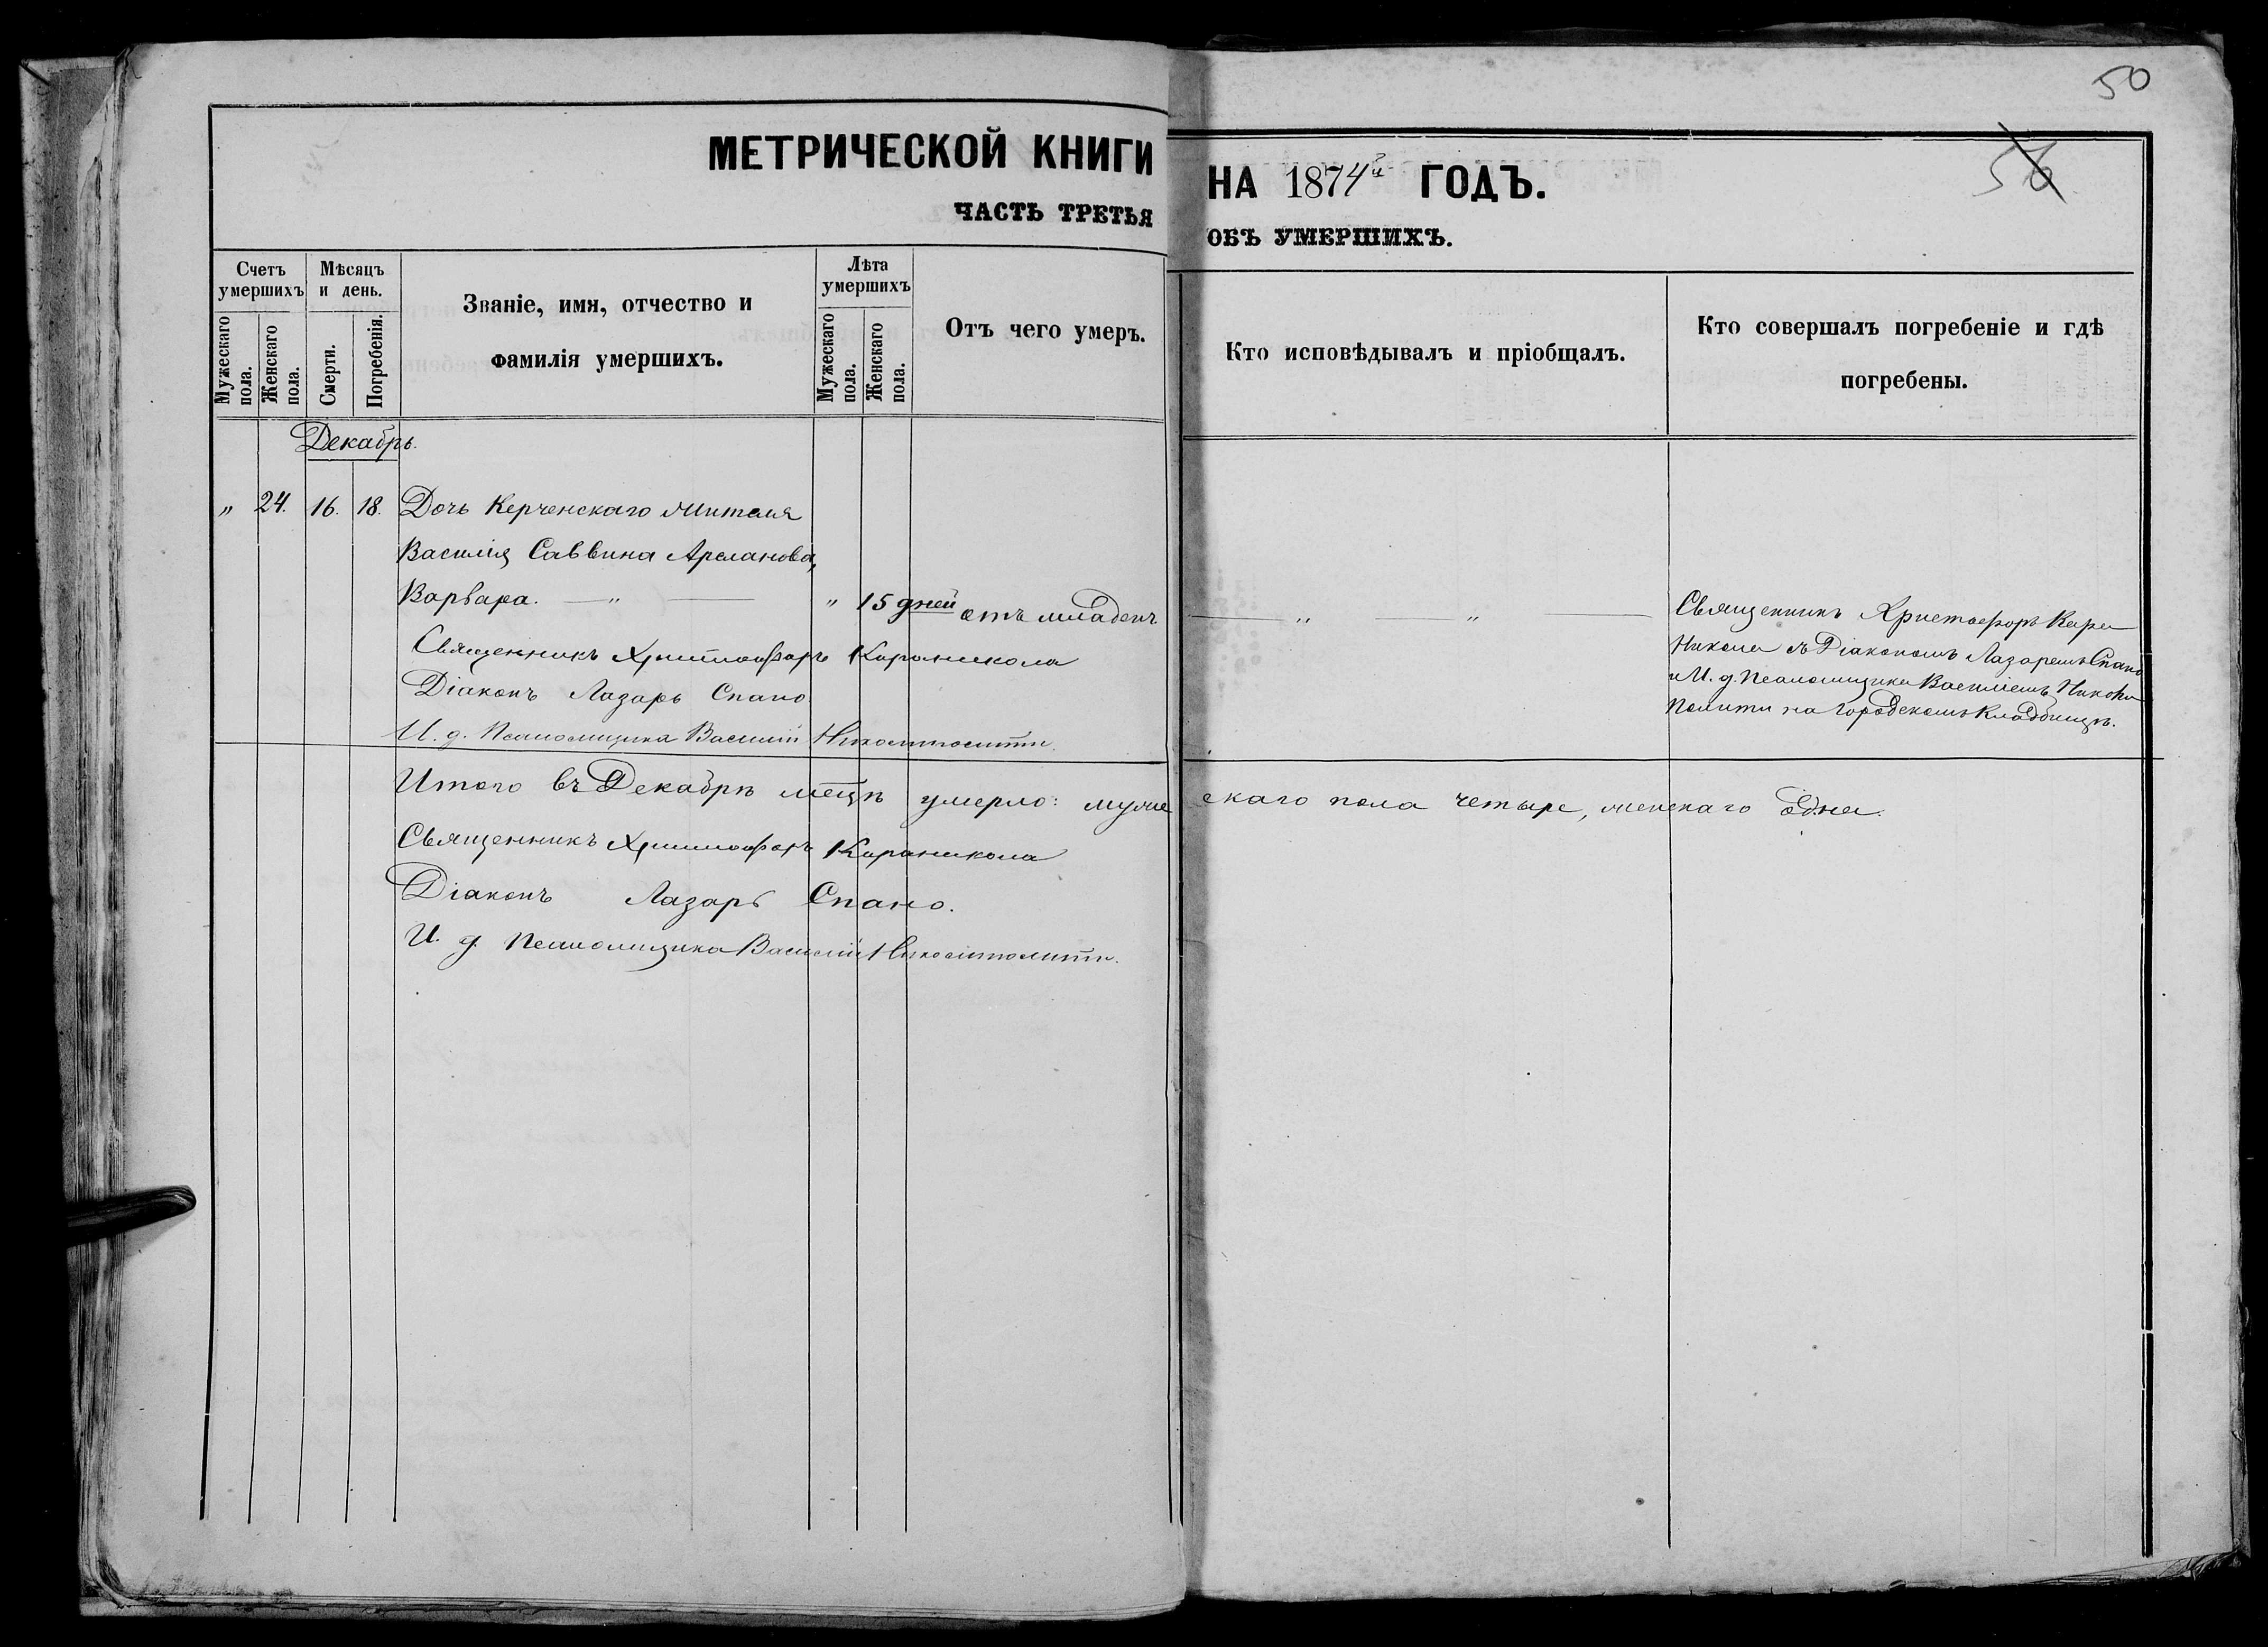 50
56
МЕТРИЧЕСКОЙ КНИГИ НА 1874й ГОДЪ.
ЧАСТЬ ТРЕТЬЯ ОБЪ УМЕРШИХЪ.
Счетъ умершихъ
Мужескаго пола.
Женскаго пола.
Мѣсяцъ и день.
Смерти.
Погребенія.
Званіе, имя, отчество и
фамилія умершихъ.
Лѣта умершихъ
Мужескаго пола.
Женскаго пола.
Отъ чего умеръ.
Кто исповѣдывалъ и пріобщалъ.
Кто совершалъ погребеніе и гдѣ
погребены.
Декабрь.
„ 24. 16. 18. Дочь Керченскаго жителя
Василія Саввина Арсланова,
Варвара. — „ — „ 15 дней отъ младенч. — „ — „ —
Священникъ Христофоръ Кара
Никола съ Діакономъ Лазаремъ Спано
и И. д. Псаломщика Василіемъ Никоно
Полити на Городскомъ Кладбищѣ.
Священникъ Христофоръ Караникола
Діаконъ Лазарь Спано
И. д. Псаломщика Василій
Итого въ Декабрѣ мѣцѣ умерло: мужескаго пола четыре, женскаго одна.
Священникъ Христофоръ Караникола
Діаконъ Лазарь Спано.
И. д. Псаломщика Василій